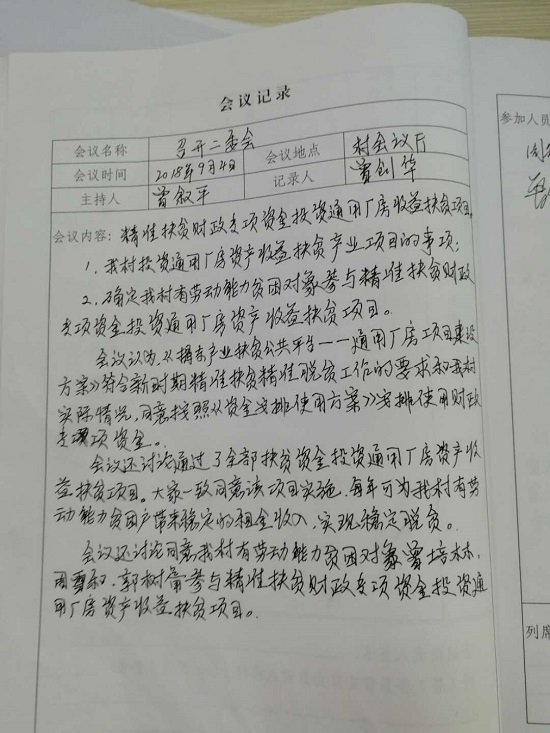 会议记录
会议名称 召开二委会 会议地点 村会议厅
会议时间 2018年9月4日 记录人 曾创华
主持人 曾叙平
会议内容: 精准扶贫财政专项资金投资通用厂房收益扶贫项目。
1. 我村投资通用厂房资产收益扶贫产业项目的事项;
2. 确定我村有劳动能力贫困对象参与精准扶贫财政
专项资金投资通用厂房资产收益扶贫项目。
会议认为,《揭东产业扶贫公共平台——通用厂房项目建设
方案》符合新时期精准扶贫精准脱贫工作的要求和我村
实际情况,同意按照《资金安排使用方案》安排使用财政
专项资金。
会议还讨论通过了全部扶贫资金投资通用厂房资产收
益扶贫项目。大家一致同意该项目实施,每年可为我村有劳
动能力贫困户带来稳定的租金收入,实现稳定脱贫。
会议还讨论同意我村有劳动能力贫困对象曾培林、
郭树 参与精准扶贫财政专项资金投资通
用厂房资产收益扶贫项目。
参加人员
列席